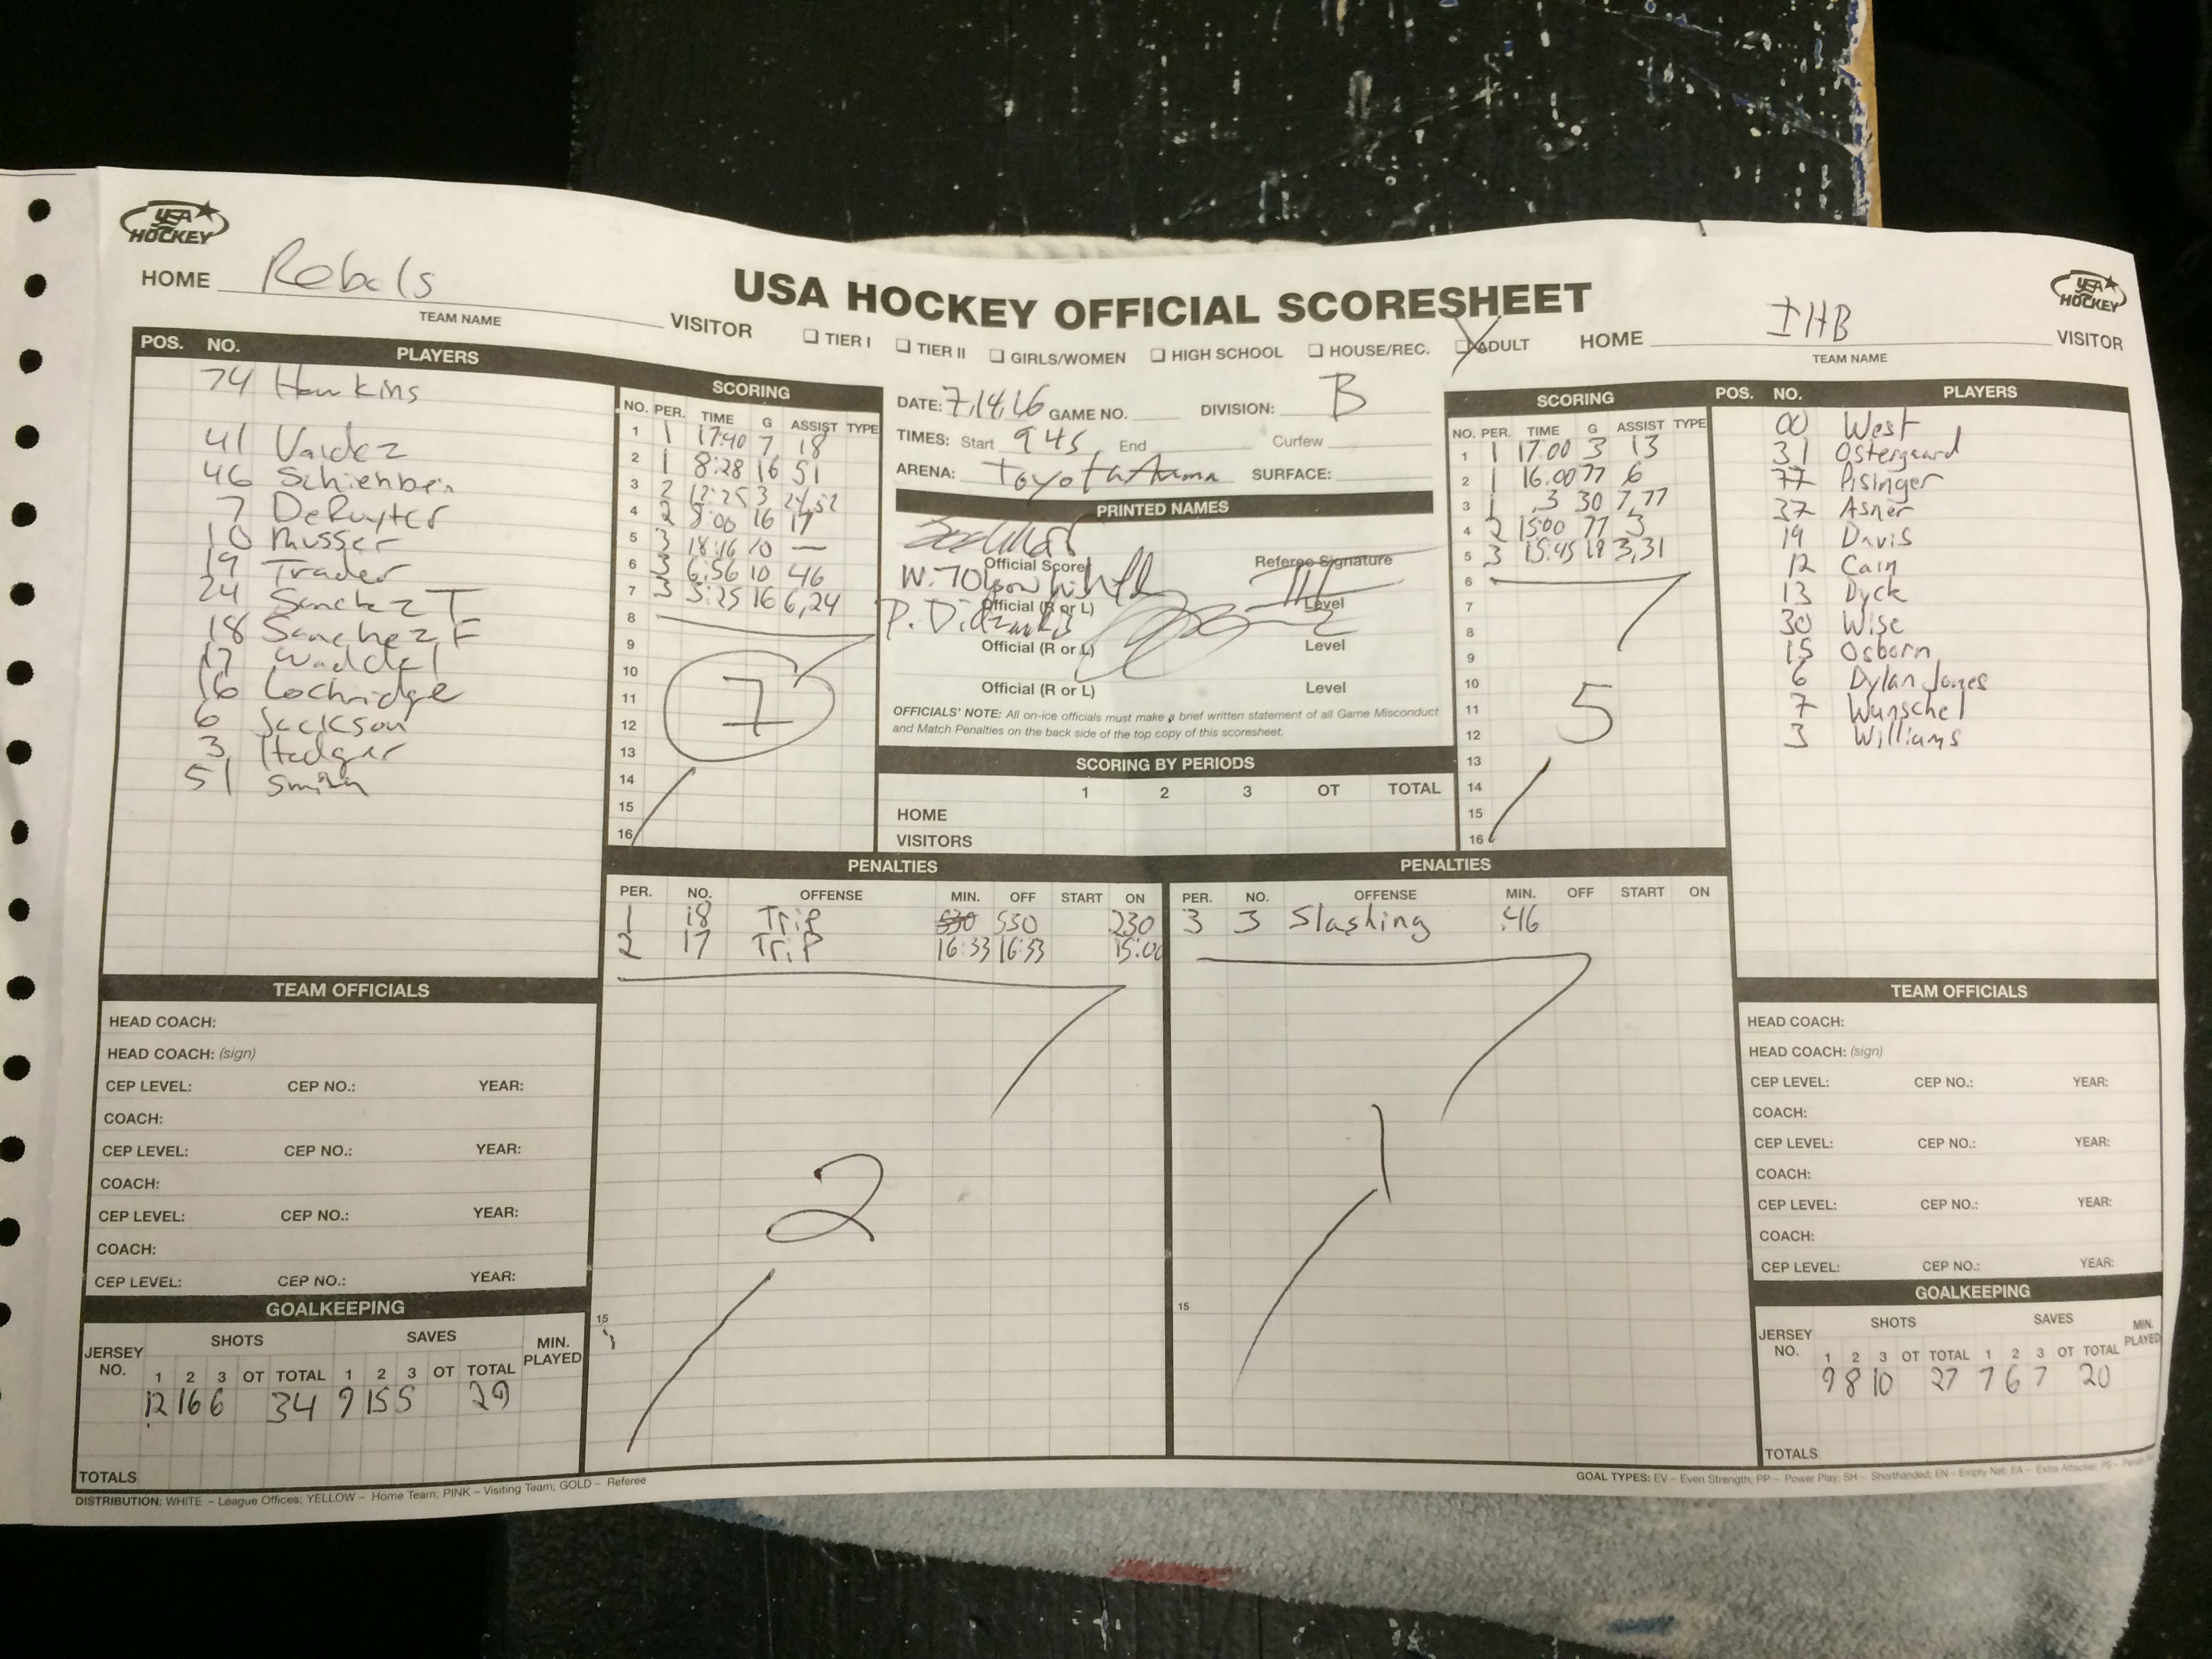 USA HOCKEY
HOME Rebels
TEAM NAME
VISITOR
USA HOCKEY OFFICIAL SCORESHEET
☐ TIER I ☐ TIER II ☐ GIRLS/WOMEN ☐ HIGH SCHOOL ☐ HOUSE/REC. ☒ ADULT
HOME IHB VISITOR
TEAM NAME
USA HOCKEY
POS. NO. PLAYERS
74 Hawkins
41 Valdez
46
7 DeRuyter
10 Musser
19 Trader
24 Sanchez T
18 Sanchez F
17 Waddel
16 Lochridge
6 Jackson
3 Hedger
51 Smith
SCORING
NO. PER. TIME G ASSIST TYPE
1 1 17:40 7 18
2 1 8:28 16 51
3 2 12:25 3
4 2 8:00 16 17
5 3 18:16 10 —
6 3 6:56 10 46
7 3 5:25 16 6,24
8
9
10
11
12
13
14
15
16
7
DATE: 7,14,16 GAME NO. DIVISION: B
TIMES: Start 945 End Curfew
ARENA: Toyota Arena SURFACE:
PRINTED NAMES
Official Scorer Referee Signature
Official (R or L) Level
Official (R or L) Level
Official (R or L) Level
OFFICIALS' NOTE: All on-ice officials must make a brief written statement of all Game Misconduct
and Match Penalties on the back side of the top copy of this scoresheet.
SCORING BY PERIODS
1 2 3 OT TOTAL
HOME
VISITORS
SCORING
NO. PER. TIME G ASSIST TYPE
1 1 17:00 3 13
2 1 16:00 77 6
3 1 .3 30 7,77
4 2 15:00 77 3
5 3 15:45 19 3,31
6
7
8
9
10
11
12
13
14
15
16
5
POS. NO. PLAYERS
00 West
31 Ostergaard
77 Pisinger
37 Asner
19 Davis
12 Cain
13 Dyck
30 Wise
15 Osborn
6 Dylan Jones
7 Wunschel
3 Williams
PENALTIES
PER. NO. OFFENSE MIN. OFF START ON
1 18 Trip 530 530 230
2 17 TriP 16:33 16:33 15:00
2
15
PENALTIES
PER. NO. OFFENSE MIN. OFF START ON
3 3 Slashing :46
1
15
TEAM OFFICIALS
HEAD COACH:
HEAD COACH: (sign)
CEP LEVEL: CEP NO.: YEAR:
COACH:
CEP LEVEL: CEP NO.: YEAR:
COACH:
CEP LEVEL: CEP NO.: YEAR:
COACH:
CEP LEVEL: CEP NO.: YEAR:
GOALKEEPING
JERSEY NO. SHOTS SAVES MIN. PLAYED
1 2 3 OT TOTAL 1 2 3 OT TOTAL
12 16 6 34 9 15 5 29
TOTALS
TEAM OFFICIALS
HEAD COACH:
HEAD COACH: (sign)
CEP LEVEL: CEP NO.: YEAR:
COACH:
CEP LEVEL: CEP NO.: YEAR:
COACH:
CEP LEVEL: CEP NO.: YEAR:
COACH:
CEP LEVEL: CEP NO.: YEAR:
GOALKEEPING
JERSEY NO. SHOTS SAVES MIN. PLAYED
1 2 3 OT TOTAL 1 2 3 OT TOTAL
9 8 10 27 7 6 7 20
TOTALS
DISTRIBUTION: WHITE – League Offices; YELLOW – Home Team; PINK – Visiting Team; GOLD – Referee
GOAL TYPES: EV – Even Strength; PP – Power Play; SH – Shorthanded; EN – Empty Net; EA – Extra Attacker; PS –